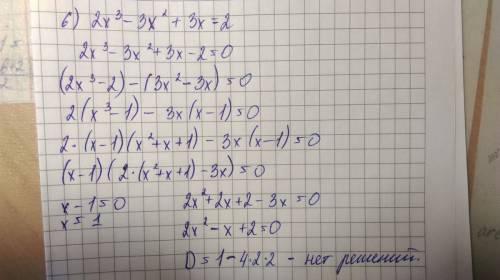 6) 2x³ - 3x² + 3x = 2
2x³ - 3x² + 3x - 2 = 0
(2x³ - 2) - (3x² - 3x) = 0
2(x³ - 1) - 3x(x - 1) = 0
2·(x - 1)(x² + x + 1) - 3x(x - 1) = 0
(x - 1)(2·(x² + x + 1) - 3x) = 0
x - 1 = 0
x = 1
2x² + 2x + 2 - 3x = 0
2x² - x + 2 = 0
D = 1 - 4·2·2 - нет решений.